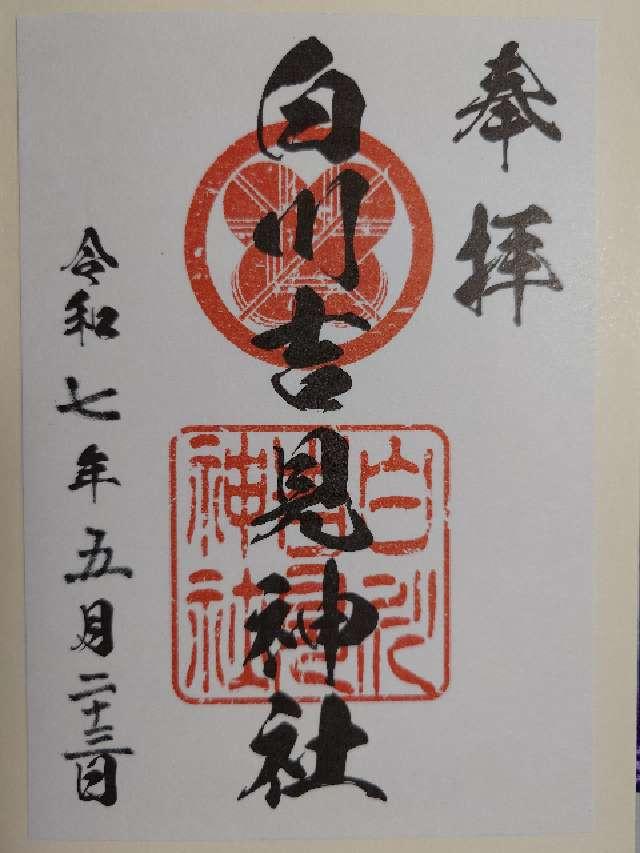 奉拝
白川吉見神社
白川
吉見
神社
令和七年五月二十三日